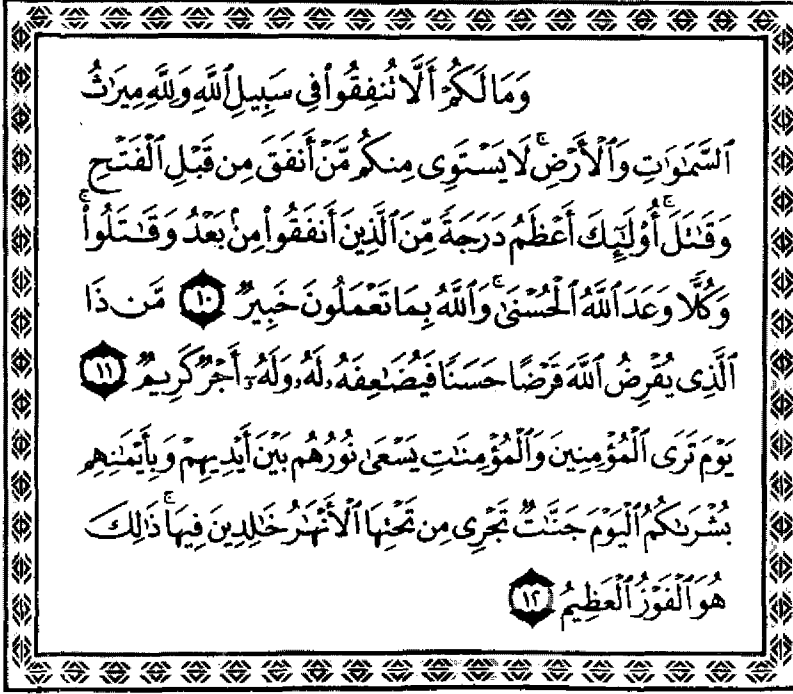 وَمَا لَكُمْ أَلَّا تُنفِقُوا۟ فِى سَبِيلِ ٱللَّهِ وَلِلَّهِ مِيرَٰثُ
ٱلسَّمَٰوَٰتِ وَٱلْأَرْضِ ۚ لَا يَسْتَوِى مِنكُم مَّنْ أَنفَقَ مِن قَبْلِ ٱلْفَتْحِ
وَقَٰتَلَ ۚ أُو۟لَٰٓئِكَ أَعْظَمُ دَرَجَةً مِّنَ ٱلَّذِينَ أَنفَقُوا۟ مِنۢ بَعْدُ وَقَٰتَلُوا۟ ۚ
وَكُلًّا وَعَدَ ٱللَّهُ ٱلْحُسْنَىٰ ۚ وَٱللَّهُ بِمَا تَعْمَلُونَ خَبِيرٌ ١٠ مَّن ذَا
ٱلَّذِى يُقْرِضُ ٱللَّهَ قَرْضًا حَسَنًا فَيُضَٰعِفَهُۥ لَهُۥ وَلَهُۥٓ أَجْرٌ كَرِيمٌ ١١
يَوْمَ تَرَى ٱلْمُؤْمِنِينَ وَٱلْمُؤْمِنَٰتِ يَسْعَىٰ نُورُهُم بَيْنَ أَيْدِيهِمْ وَبِأَيْمَٰنِهِم
بُشْرَىٰكُمُ ٱلْيَوْمَ جَنَّٰتٌ تَجْرِى مِن تَحْتِهَا ٱلْأَنْهَٰرُ خَٰلِدِينَ فِيهَا ۚ ذَٰلِكَ
هُوَ ٱلْفَوْزُ ٱلْعَظِيمُ ١٢